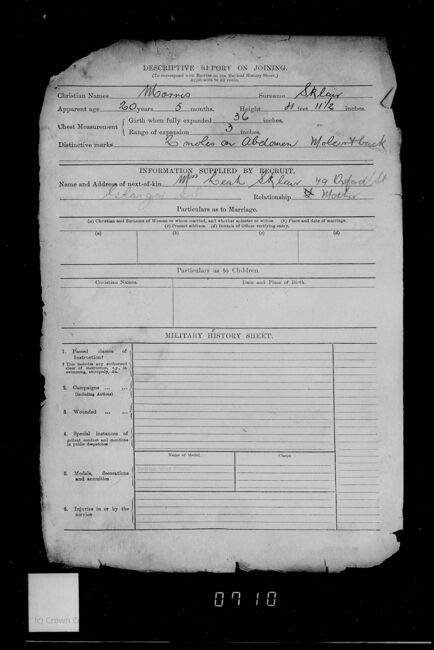 DESCRIPTIVE REPORT ON JOINING.
(To correspond with Entries on the Medical History Sheet.)
Applicable to all ranks.
Christian Names Morris Surname Sklair
Apparent age 20 years 5 months. Height 4 feet 11 1/2 inches.
Chest Measurement { Girth when fully expanded 36 inches.
Range of expansion 3 inches.
Distinctive marks 2 moles on Abdomen Mole rt back
INFORMATION SUPPLIED BY RECRUIT.
Name and Address of next-of-kin Mrs Leah Sklair 49 Oxford St
Glasgow Relationship Mother
Particulars as to Marriage.
(a) Christian and Surname of Woman to whom married, and whether spinster or widow. (b) Place and date of marriage.
(c) Present address. (d) Initials of Officer verifying entry.
(a) (b) (c) (d)
Particulars as to Children.
Christian Names. Date and Place of Birth.
MILITARY HISTORY SHEET.
1. Passed classes of Instruction†
† This includes any authorised class of instruction, e.g., in swimming, chiropody, &c.
2. Campaigns ... ...
(including Actions)
3. Wounded ... ...
4. Special instances of gallant conduct and mentions in public despatches
Name of Medal. Clasps
5. Medals, decorations and annuities
6. Injuries in or by the service
0710
(c) Crown Co